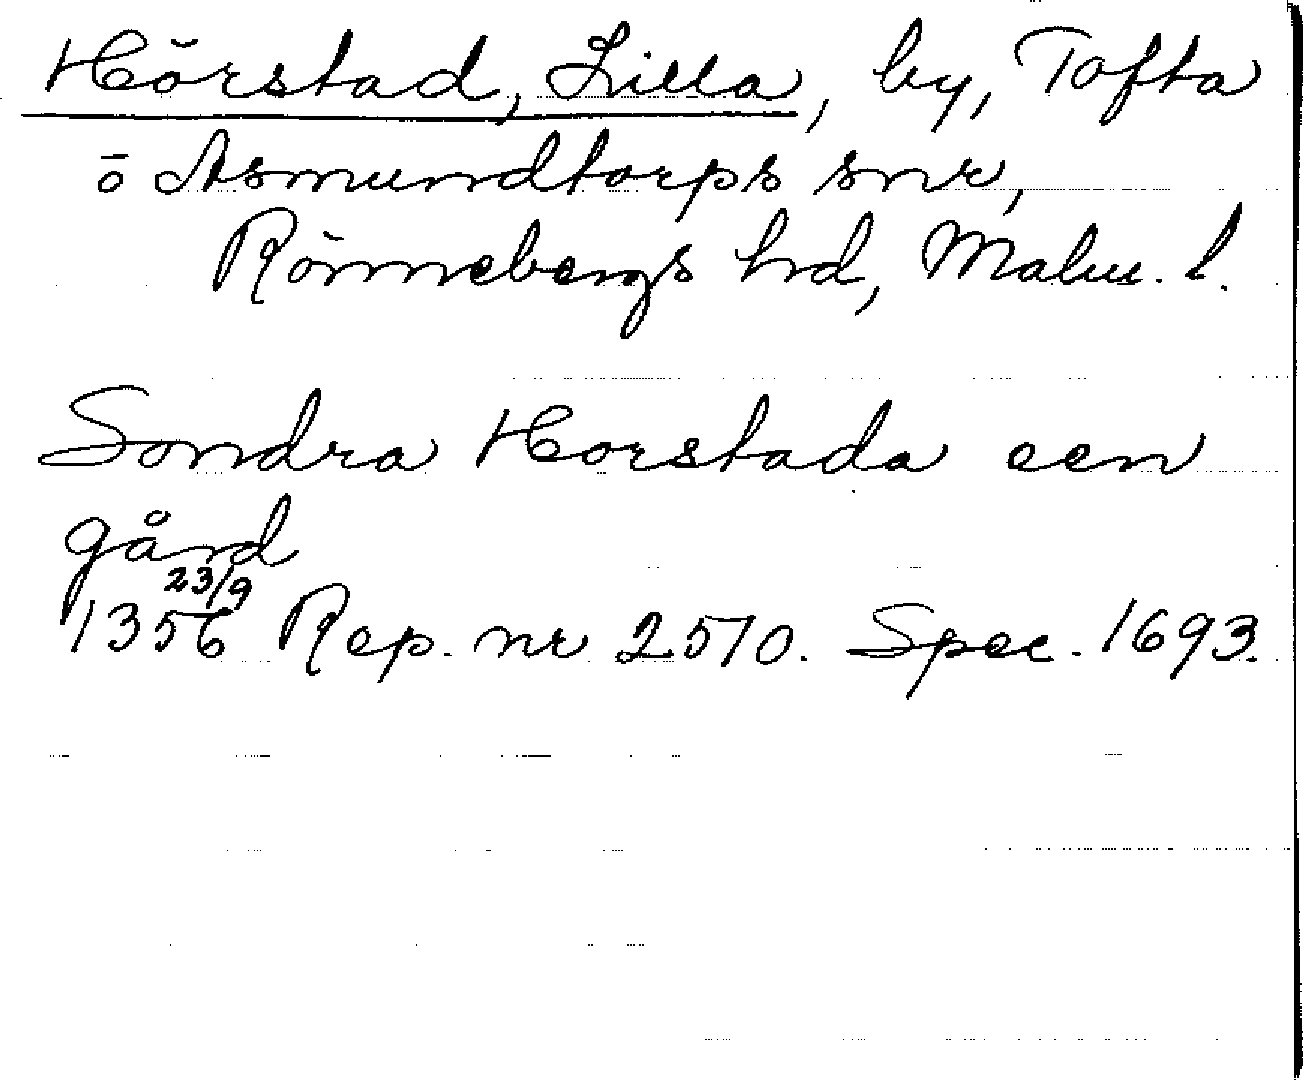 Hörstad, Lilla, by, Tofta
o Asmundtorps snr,
Rönnebergs hd, Malm. l.
Sondra Horstada een
gård
1356 23/9 Rep. nr 2570. Spec. 1693.